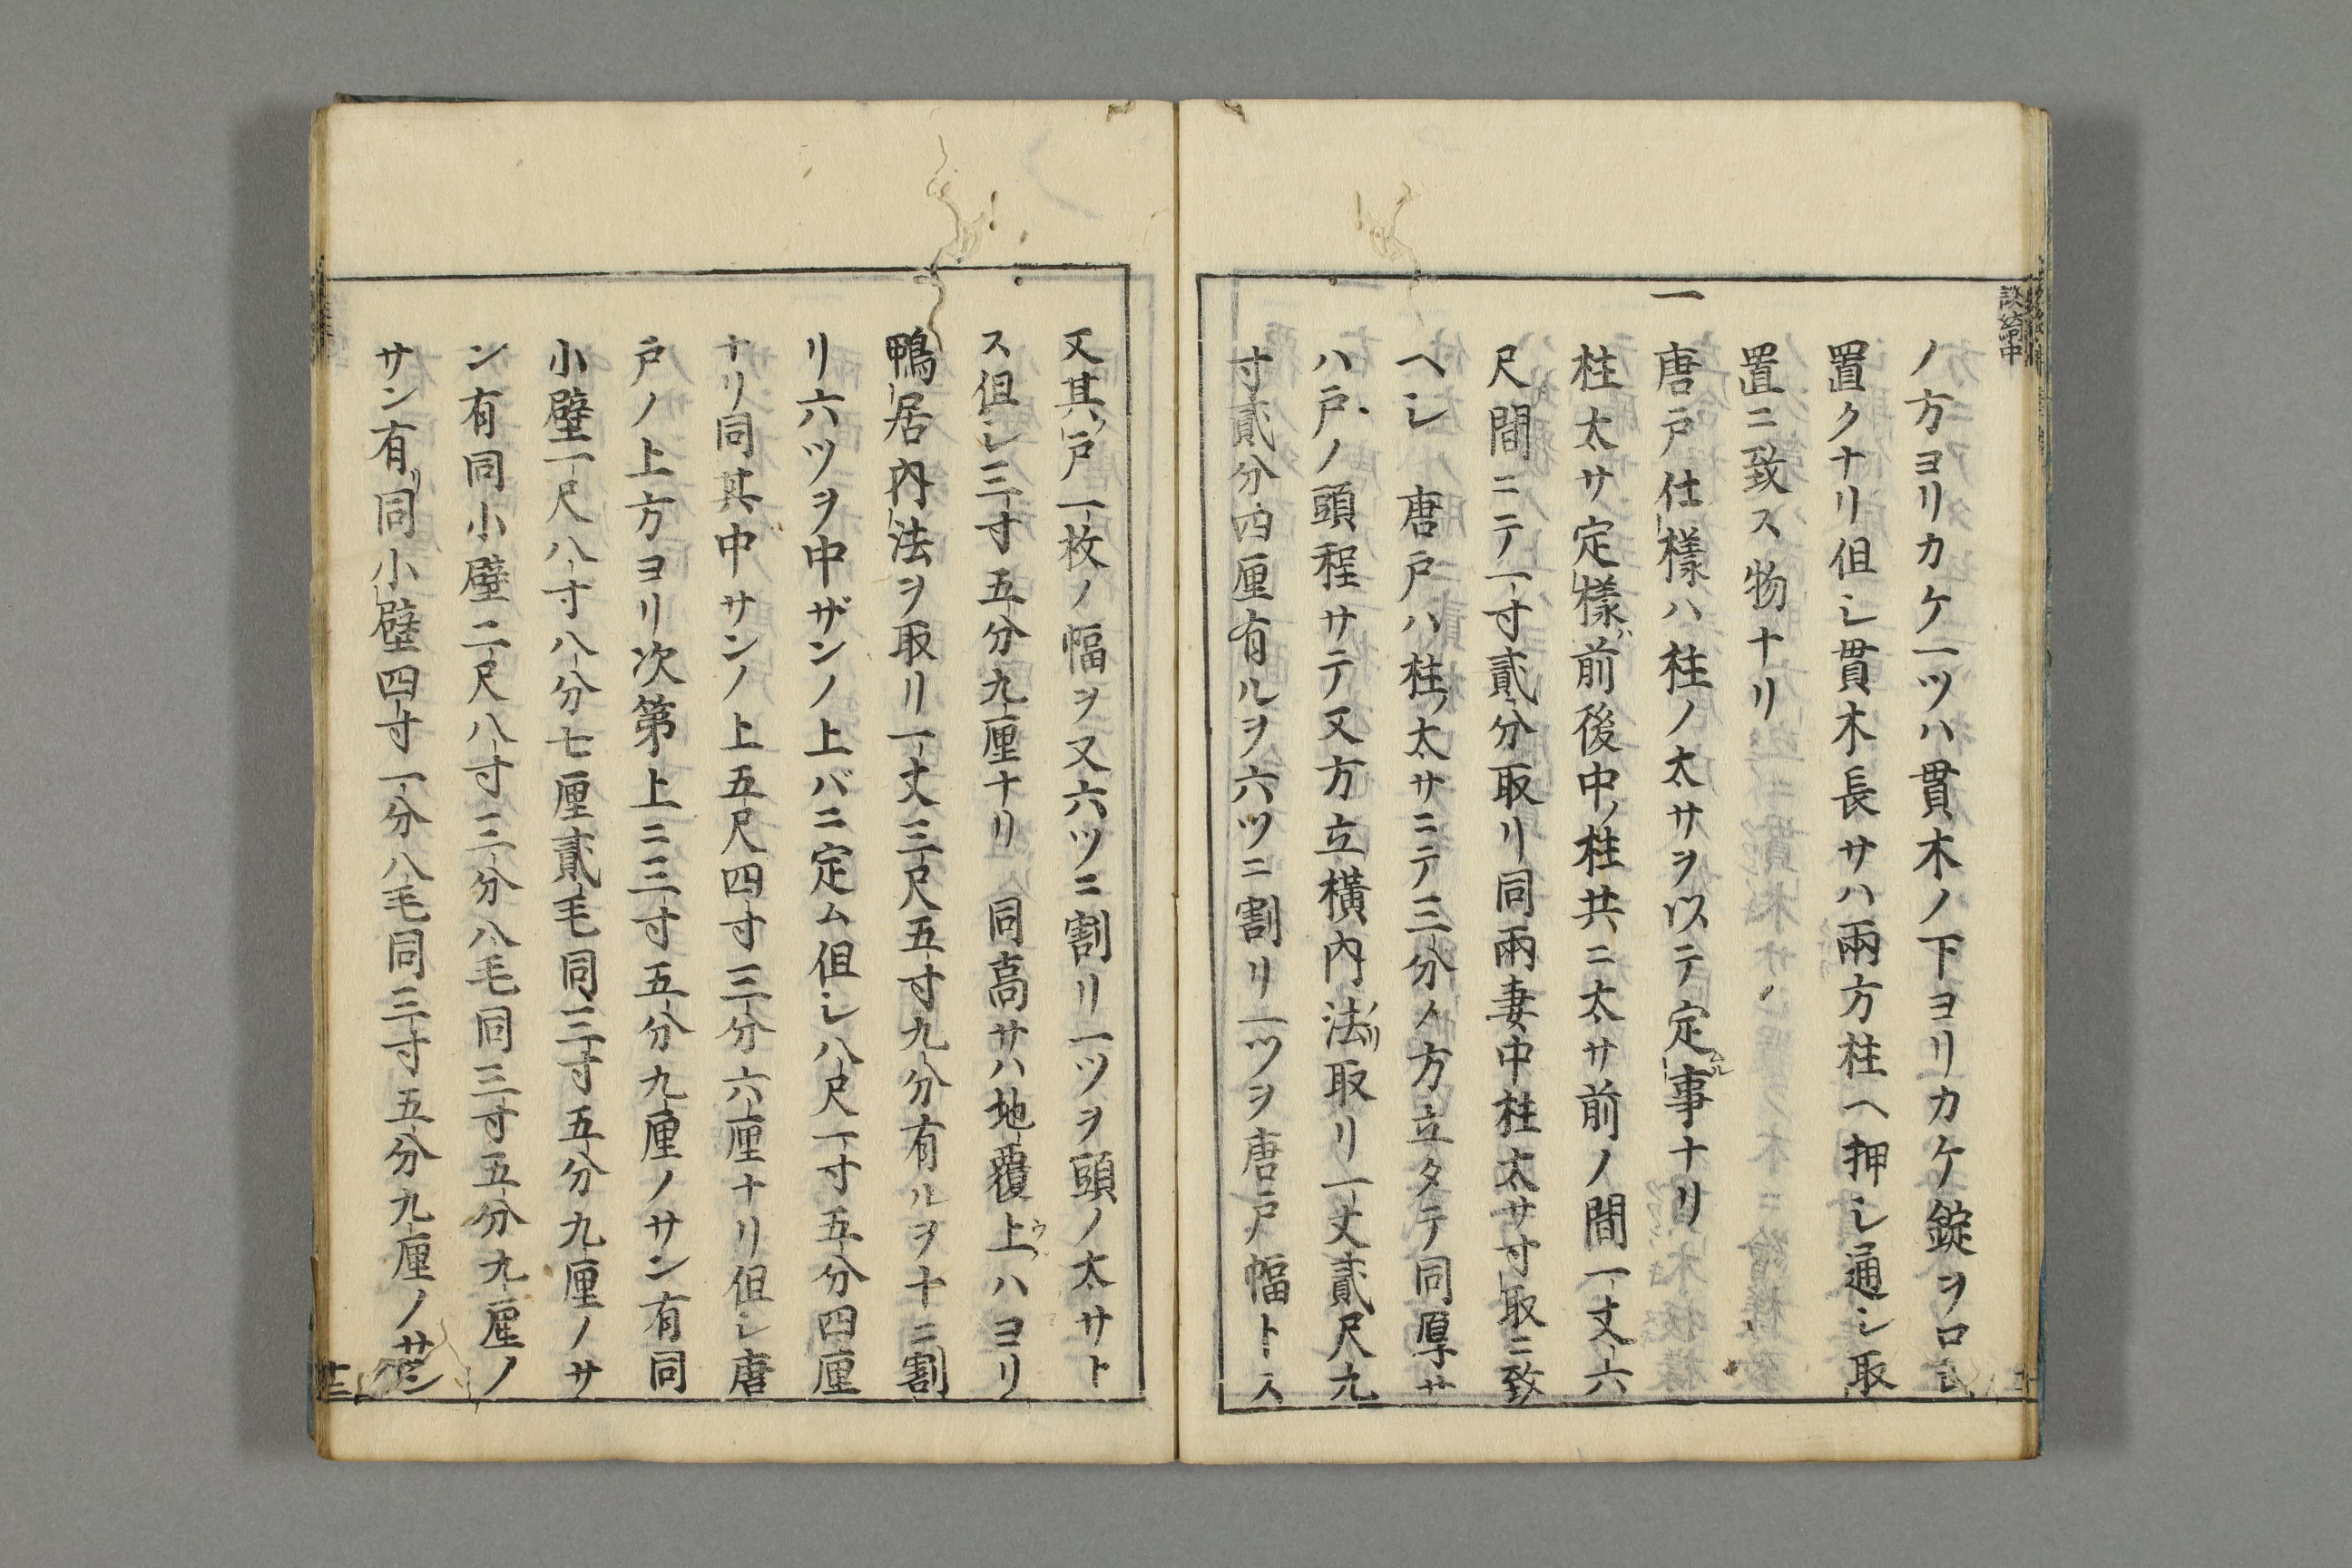 ノ方ヨリカケ一ツハ貫木ノ下ヨリカケ錠ヲロシ
置クナリ但シ貫木長サハ兩方柱ヘ押シ通シ取
置ニ致ス物ナリ
一唐戸仕様ハ柱ノ太サヲ以テ定事ナリ
柱太サ定様前後中ノ柱共ニ太サ前ノ間一丈六
尺間ニテ一寸貳分取リ同兩妻中柱太サ寸取ニ致
ヘシ 唐戸ハ柱ノ太サニテ三分ノ方立タテ同厚サ
ハ戸ノ頭程サテ又方立横内法取リ一丈貳尺九
寸貳分四厘有ルヲ六ツニ割リ一ツヲ唐戸幅トス
又其ノ戸一枚ノ幅ヲ又六ツニ割リ一ツヲ頭ノ太サト
ス但シ三寸五分九厘ナリ 同高サハ地覆上ハヨリ
鴨居内法ヲ取リ一丈三尺五寸九分有ルヲ十ニ割
リ六ツヲ中ザンノ上バニ定ム但シ八尺一寸五分四厘
ナリ同其中サンノ上五尺四寸三分六厘ナリ但シ唐
戸ノ上方ヨリ次第上ニ三寸五分九厘ノサン有同
小壁一尺八寸八分七厘貳毛同三寸五分九厘ノサ
ン有同小壁二尺八寸三分八毛同三寸五分九厘ノ
サン有同小壁四寸一分八毛同三寸五分九厘ノサン
十三